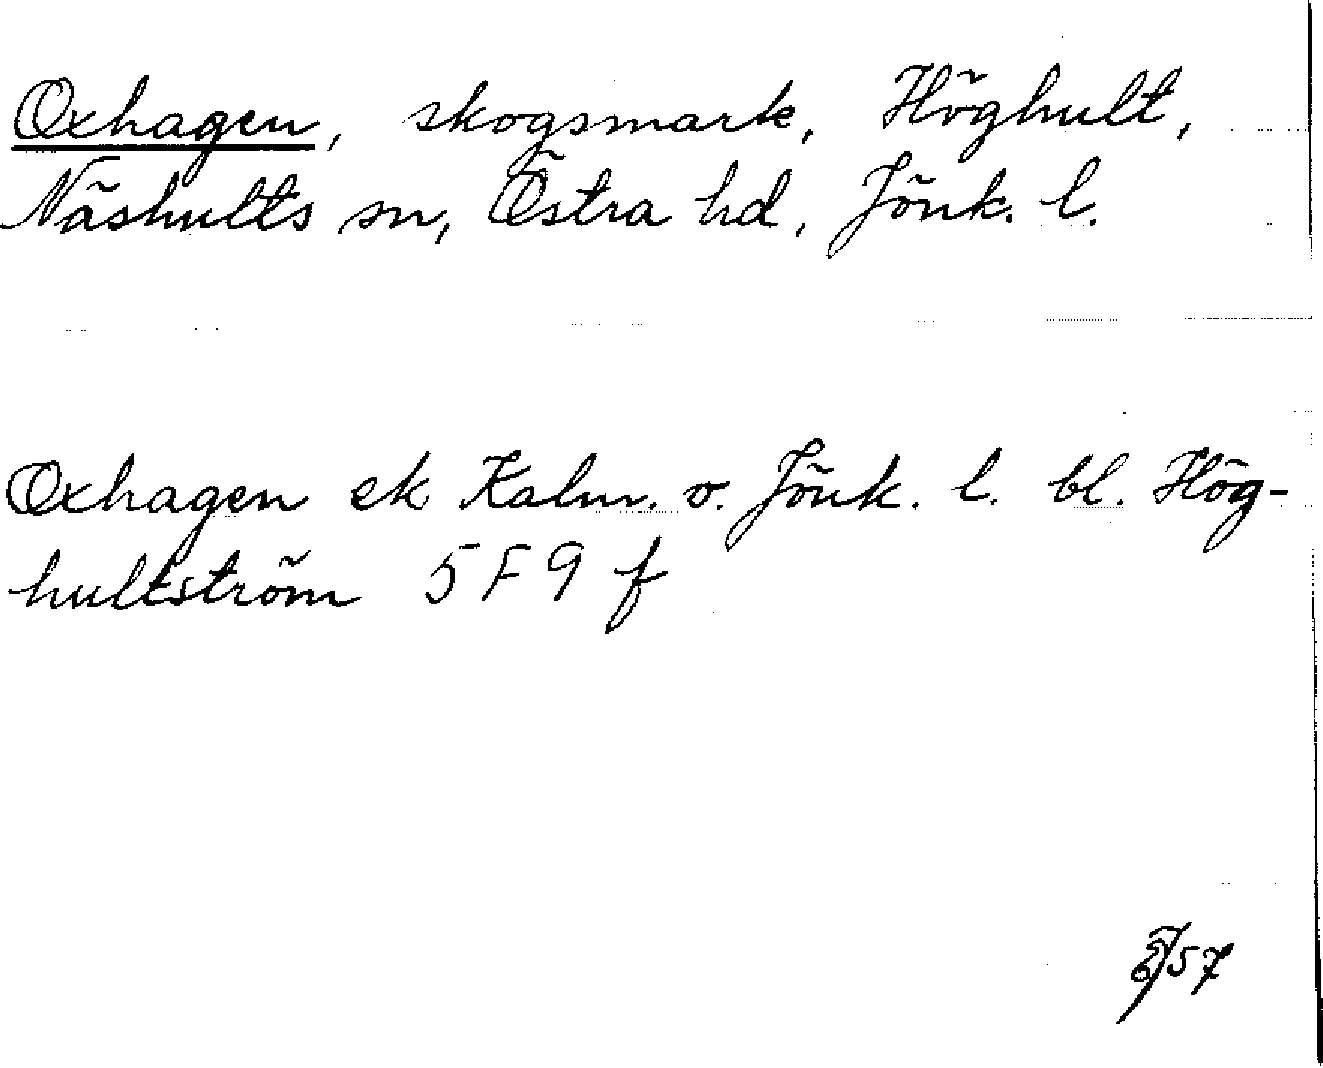 Oxhagen, skogsmark, Höghult,
Näshults sn, Östra hd, Jönk. l.
Oxhagen ek Kalm. o. Jönk. l. bl. Hög-
hultström 5 F 9 f